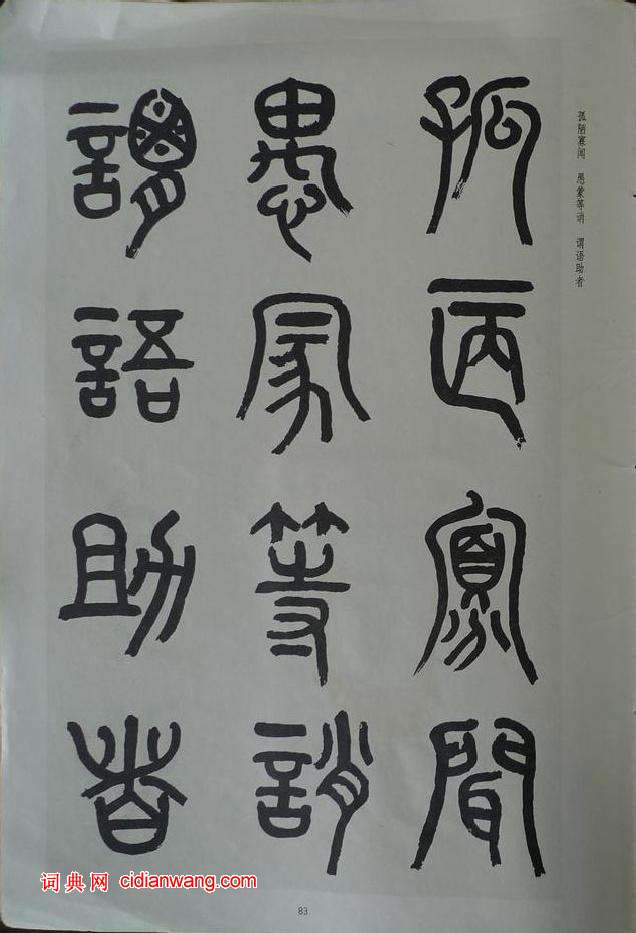 孤陋寡闻 愚蒙等诮 谓语助者
孤㔷寡聞
愚冡等誚
謂語助者
词典网 cidianwang.com
83